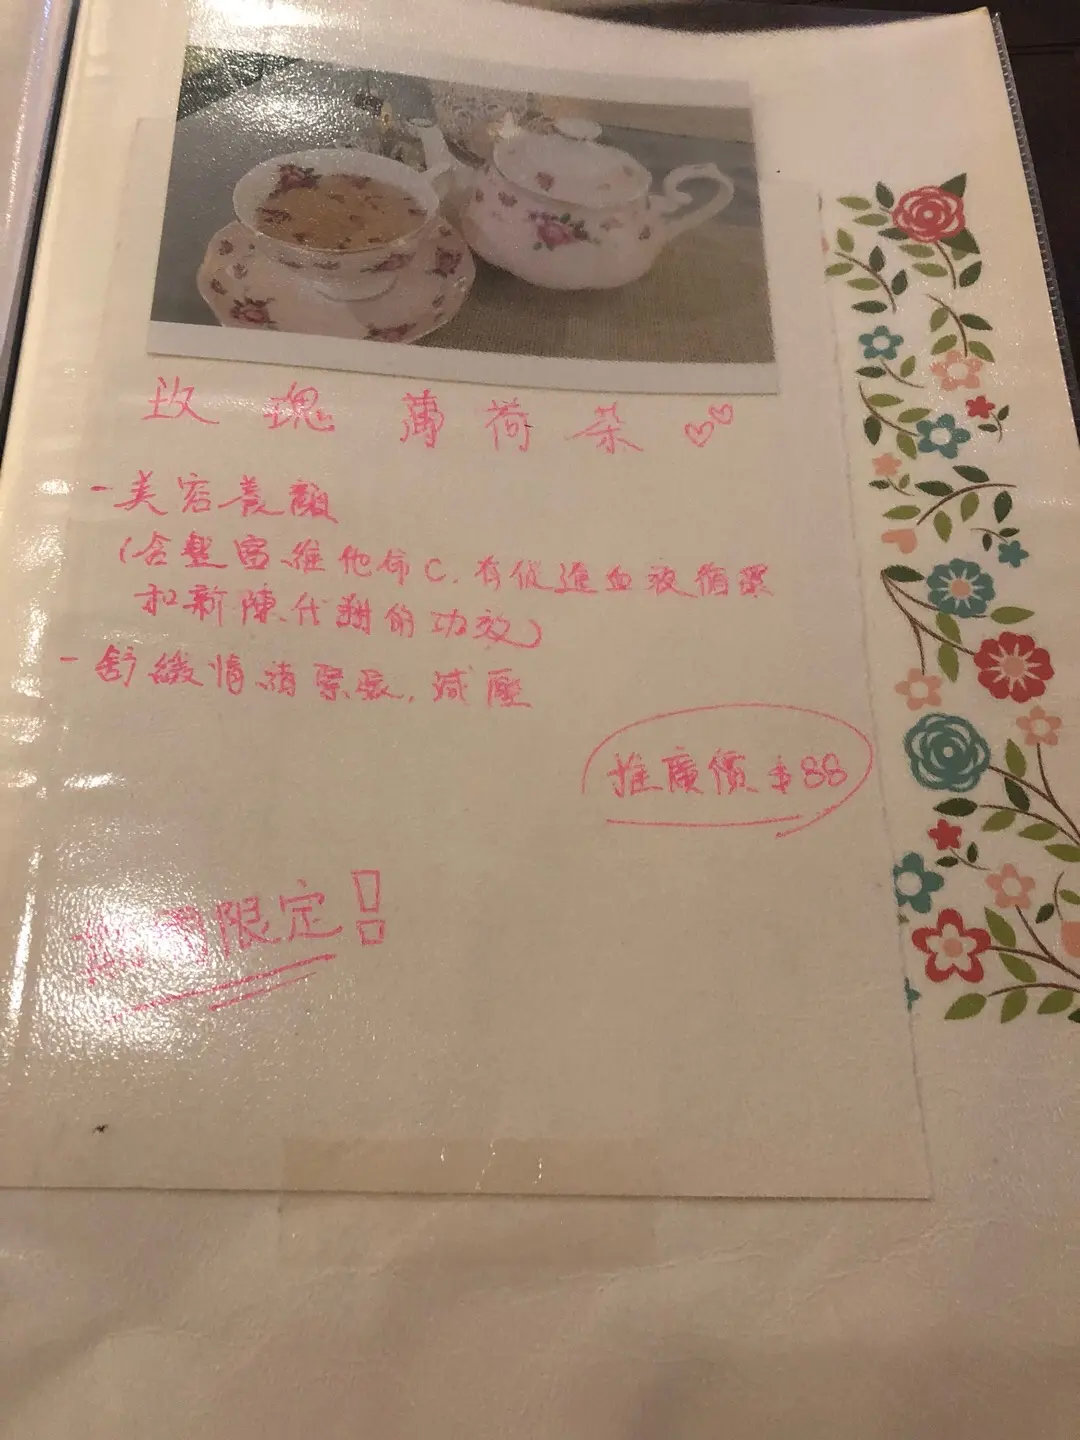 玫瑰薄荷茶
-美容養顏
(含豐富維他命C,有促進血液循環
和新陳代謝的功效)
-舒緩情緒緊張,減壓
推廣價$88
限定!